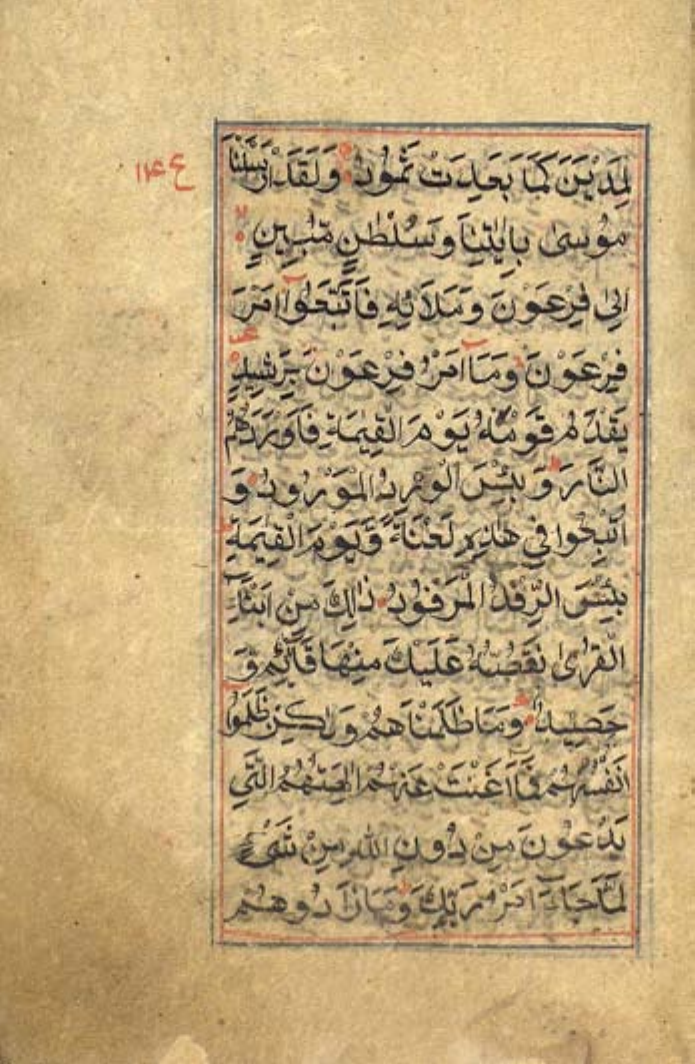 لِمَدْيَنَ كَمَا بَعِدَتْ ثَمُودُ وَلَقَدْ اَرْسَلْنَا
مُوْسٰى بِاٰيٰتِنَا وَسُلْطٰنٍ مُّبِيْنٍ
اِلٰى فِرْعَوْنَ وَمَلَائِهٖ فَاتَّبَعُوْٓا اَمْرَ
فِرْعَوْنَ وَمَٓا اَمْرُ فِرْعَوْنَ بِرَشِيْدٍ
يَقْدُمُ قَوْمَهٗ يَوْمَ الْقِيٰمَةِ فَاَوْرَدَهُمُ
النَّارَ وَبِئْسَ الْوِرْدُ الْمَوْرُوْدُ وَ
اُتْبِعُوْا فِيْ هٰذِهٖ لَعْنَةً وَّيَوْمَ الْقِيٰمَةِ
بِئْسَ الرِّفْدُ الْمَرْفُوْدُ ذٰلِكَ مِنْ اَنْبَٓاءِ
الْقُرٰى نَقُصُّهٗ عَلَيْكَ مِنْهَا قَٓائِمٌ وَّ
حَصِيْدٌ وَمَا ظَلَمْنَاهُمْ وَلٰكِنْ ظَلَمُوْٓا
اَنْفُسَهُمْ فَمَٓا اَغْنَتْ عَنْهُمْ اٰلِهَتُهُمُ الَّتِيْ
يَدْعُوْنَ مِنْ دُوْنِ اللّٰهِ مِنْ شَيْءٍ
لَمَّا جَٓاءَ اَمْرُ رَبِّكَ وَمَا زَادُوْهُمْ